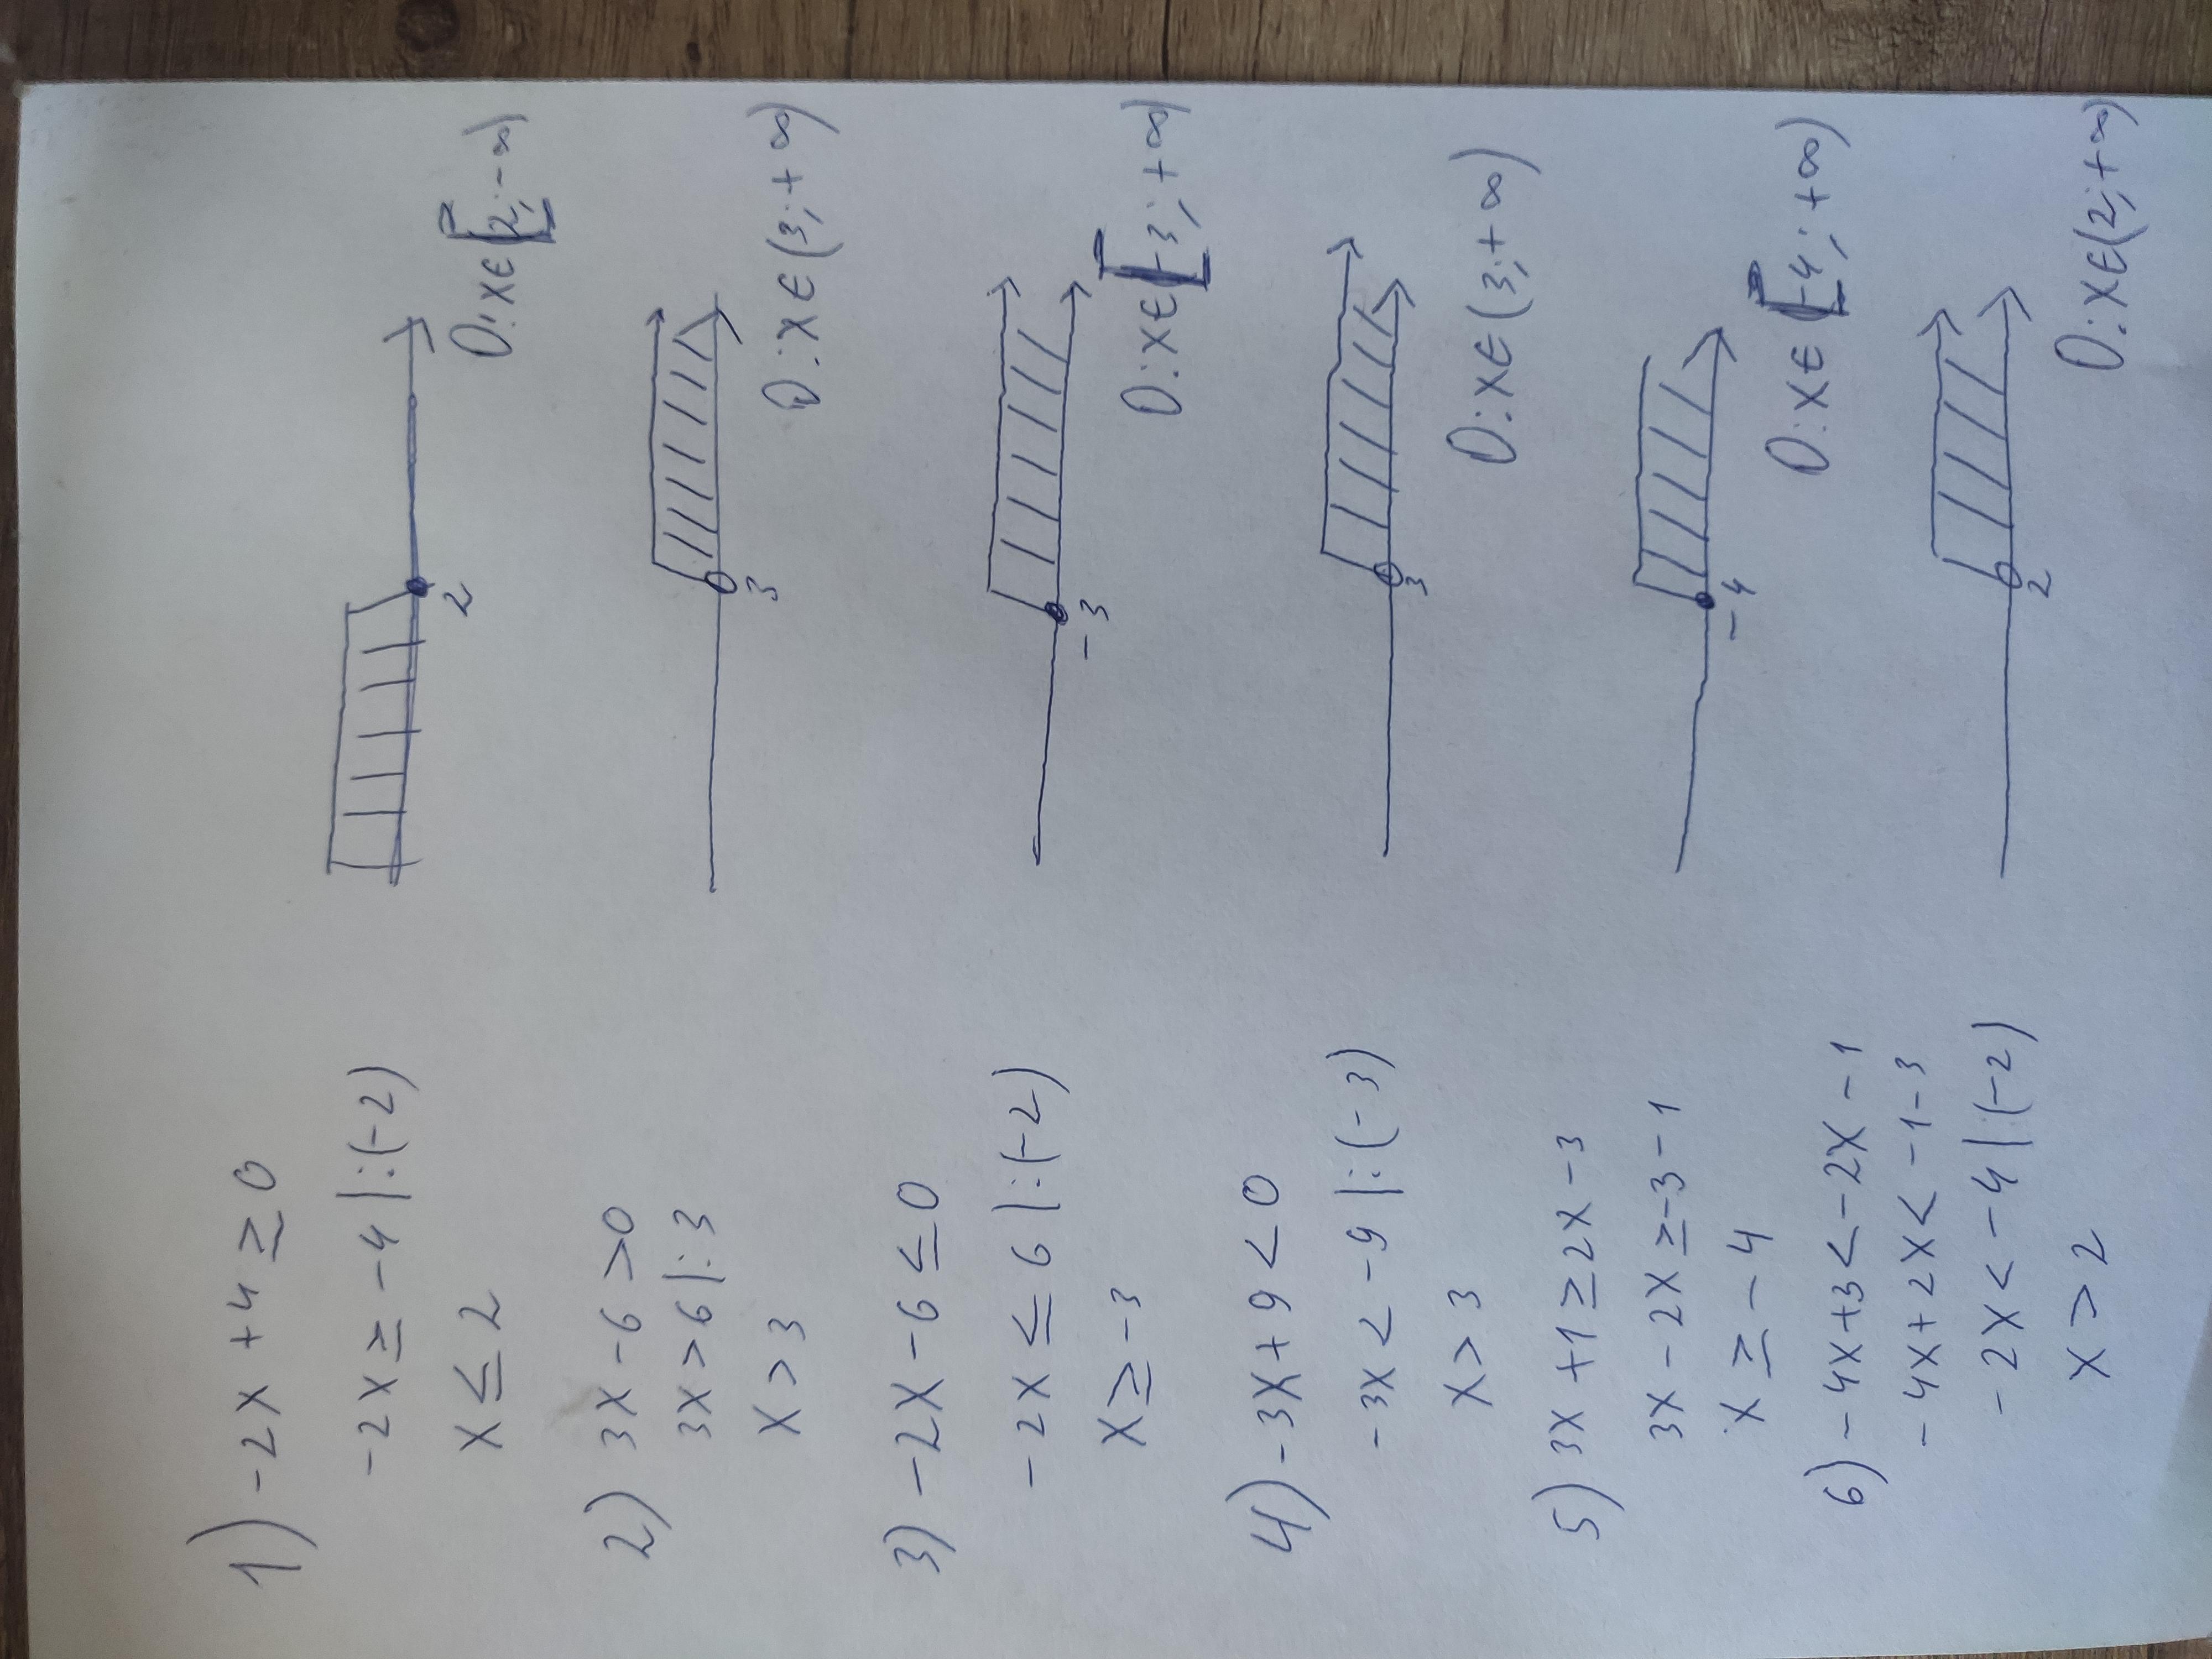 1) -2x + 4 ≥ 0
-2x ≥ -4 |:(-2)
x ≤ 2
2
D: x ∈ [2; -∞)
2) 3x - 6 > 0
3x > 6 |:3
x > 3
3
D: x ∈ (3; +∞)
3) -2x - 6 ≤ 0
-2x ≤ 6 |:(-2)
x ≥ -3
-3
D: x ∈ [-3; +∞)
4) -3x + 9 < 0
-3x < -9 |:(-3)
x > 3
3
D: x ∈ (3; +∞)
5) 3x + 1 ≥ 2x - 3
3x - 2x ≥ -3 - 1
x ≥ -4
-4
D: x ∈ [-4; +∞)
6) -4x + 3 < -2x - 1
-4x + 2x < -1 - 3
-2x < -4 |:(-2)
x > 2
2
D: x ∈ (2; +∞)